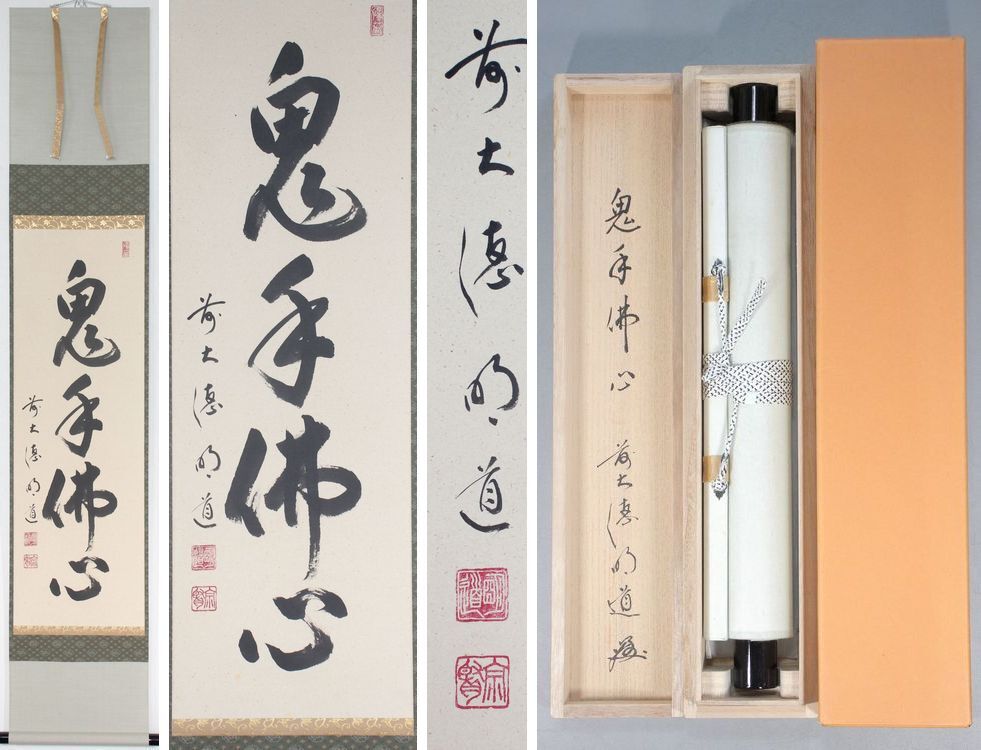 鬼手佛心
前大徳明道
鬼手佛心
前大徳明道
前大徳明道
明道
宗賢
鬼手佛心 前大徳明道